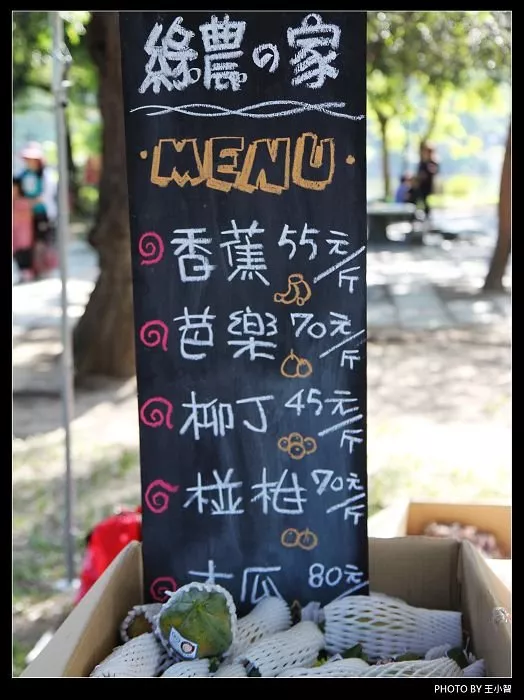 綠農の家
MENU
香蕉 55元/斤
芭樂 70元/斤
柳丁 45元/斤
椪柑 70元/斤
木瓜 80元/
PHOTO BY 王小智